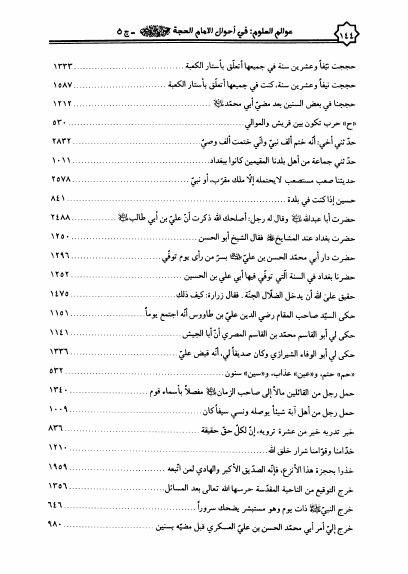 ١٤٤ عوالم العلوم: في أحوال الامام الحجة ـ ج ٥
حججت نيّفاً وعشرين سنة في جميعها أتعلّق بأستار الكعبة ١٣٣٣
حججت نيفاً وعشرين سنة، كنت في جميعها أتعلق بأستار الكعبة ١٥٨٧
حججنا في بعض السنين بعد مضيّ أبي محمّد ١٢١٢
«ح» حرب تكون بين قريش والموالي ٥٣٠
حدّثني أخي: أنّه ختم ألف نبيّ وأنّي ختمت ألف وصيّ ٢٨٣٢
حدّثني جماعة من أهل بلدنا المقيمين كانوا ببغداد ١٠١١
حديثنا صعب مستصعب لايحتمله إلّا ملك مقرّب، أو نبيّ ٢٥٧٨
حسين إذا كنت في بلدة ٨٤١
حضرت أبا عبدالله وقال له رجل: أصلحك الله ذكرت أنّ عليّ بن أبي طالب ٢٤٨٨
حضرت بغداد عند المشايخ فقال الشيخ أبو الحسن ١٢٥٠
حضرت دار أبي محمّد الحسن بن عليّ بسرّ من رأى يوم توفّي ١٢٩٦
حضرنا بغداد في السنة الّتي توفّي فيها أبي علي بن الحسين ١٢٥٢
حقيق على الله أن يدخل الضلّال الجنّة. فقال زرارة: كيف ذلك ١٤٧٥
حكى السيّد صاحب المقام رضي الدين عليّ بن طاووس أنّه اجتمع يوماً ١١٥١
حكى لي أبو القاسم محمّد بن القاسم المصري أنّ أبا الجيش ١١٤١
حكى لي أبو الوفاء الشيرازي وكان صديقاً لي، أنّه قبض عليّ ١٣٣٦
«حم» حتم، و«عين» عذاب، و«سين» سنون ٥٣٢
حمل رجل من القائلين مالاً إلى صاحب الزمان مفصلاً بأسماء قوم ١٣٤٠
حمل رجل من أهل آبة شيئاً يوصله ونسي سيفاً كان ١٠٠٩
خبر تدريه خير من عشرة ترويه، إنّ لكلّ حقّ حقيقة ٨٣٦
خدّامنا وقوّامنا شرار خلق الله ١٢١٠
خذوا بحجزة هذا الأنزع، فإنّه الصدّيق الأكبر والهادي لمن اتّبعه ١٩٥٩
خرج التوقيع من الناحية المقدّسة حرسها الله تعالى بعد المسائل ١٣٥٦
خرج النبيّ ذات يوم وهو مستبشر يضحك سروراً ٦٤٦
خرج إليّ أمر أبي محمّد الحسن بن عليّ العسكري قبل مضيّه بسنين ٩٨٠